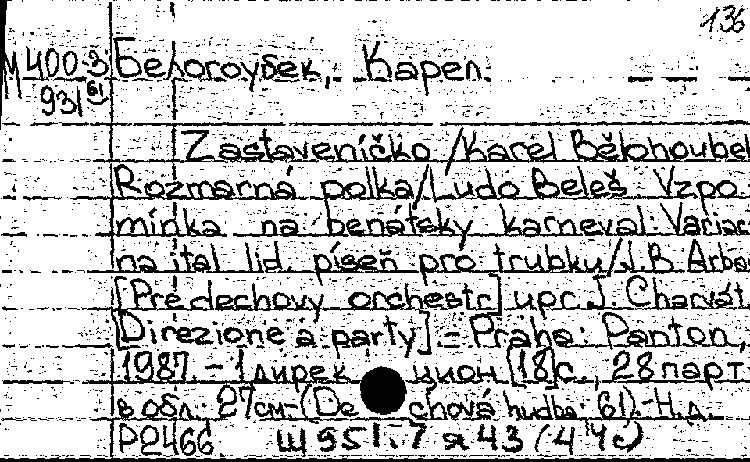 136
М 400-3 Белогоубек, Карел.
931 61
Zastaveníčko / Karel Bělohoubek
Rozmarná polka / Ludo Beleš Vzpo-
mínka na benátský karneval: Variac
na ital lid. píseň pro trubku / J. B. Arba
[Pre dechovy orchestr] upr. J. Charvát.
[Direzione a party]. - Praha: Panton,
1987. - 1 дирек цион [18] с., 28 парт.
в обл.; 27 см - (De chová hudba; 61). - Н. д.
P2466 Ш 951.7 я 43